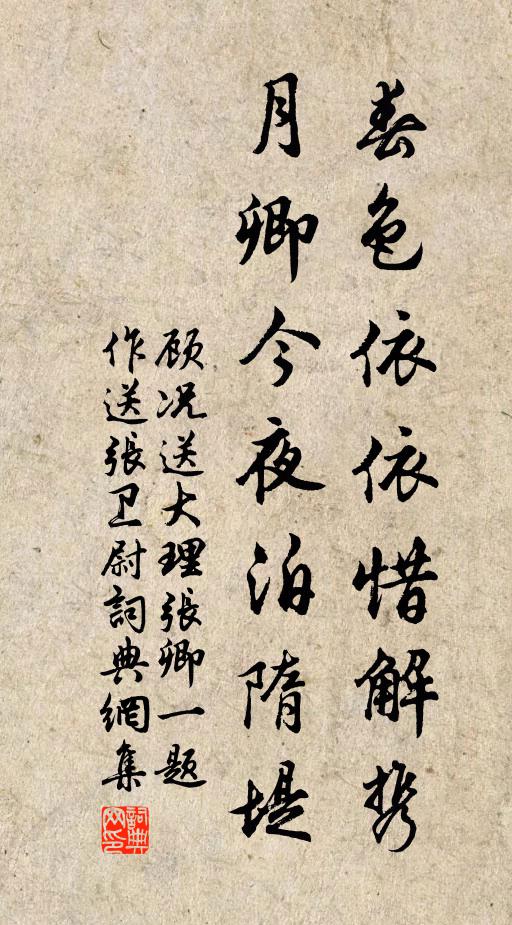 春色依依惜解携
月卿今夜泊隋堤
顾况送大理張卿一题
作送張卫尉詞典網集
詞典
网印